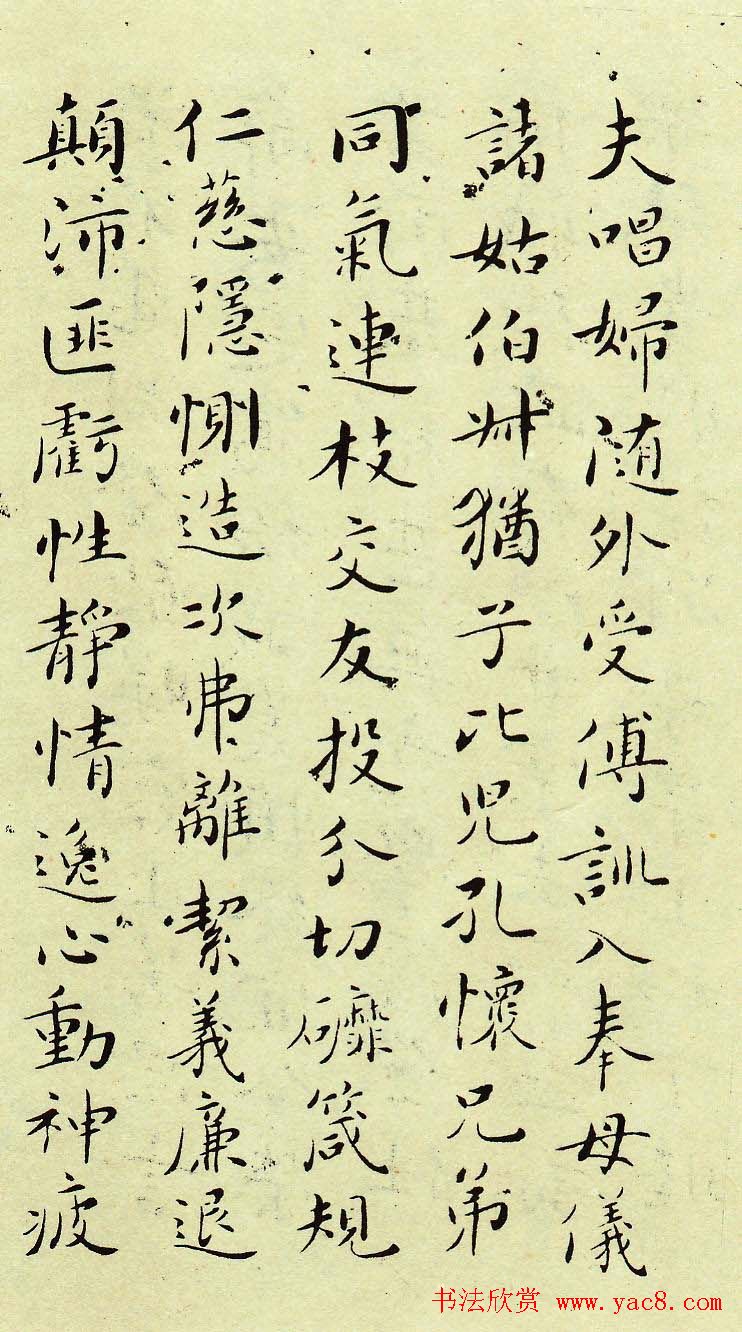 夫唱婦随外受傅訓入奉母儀
諸姑伯叔猶子比児孔懷兄弟
同氣連枝交友投分切䃺箴規
仁慈隱惻造次弗離絜義廉退
顛沛匪虧性靜情逸心動神疲
书法欣赏 www.yac8.com